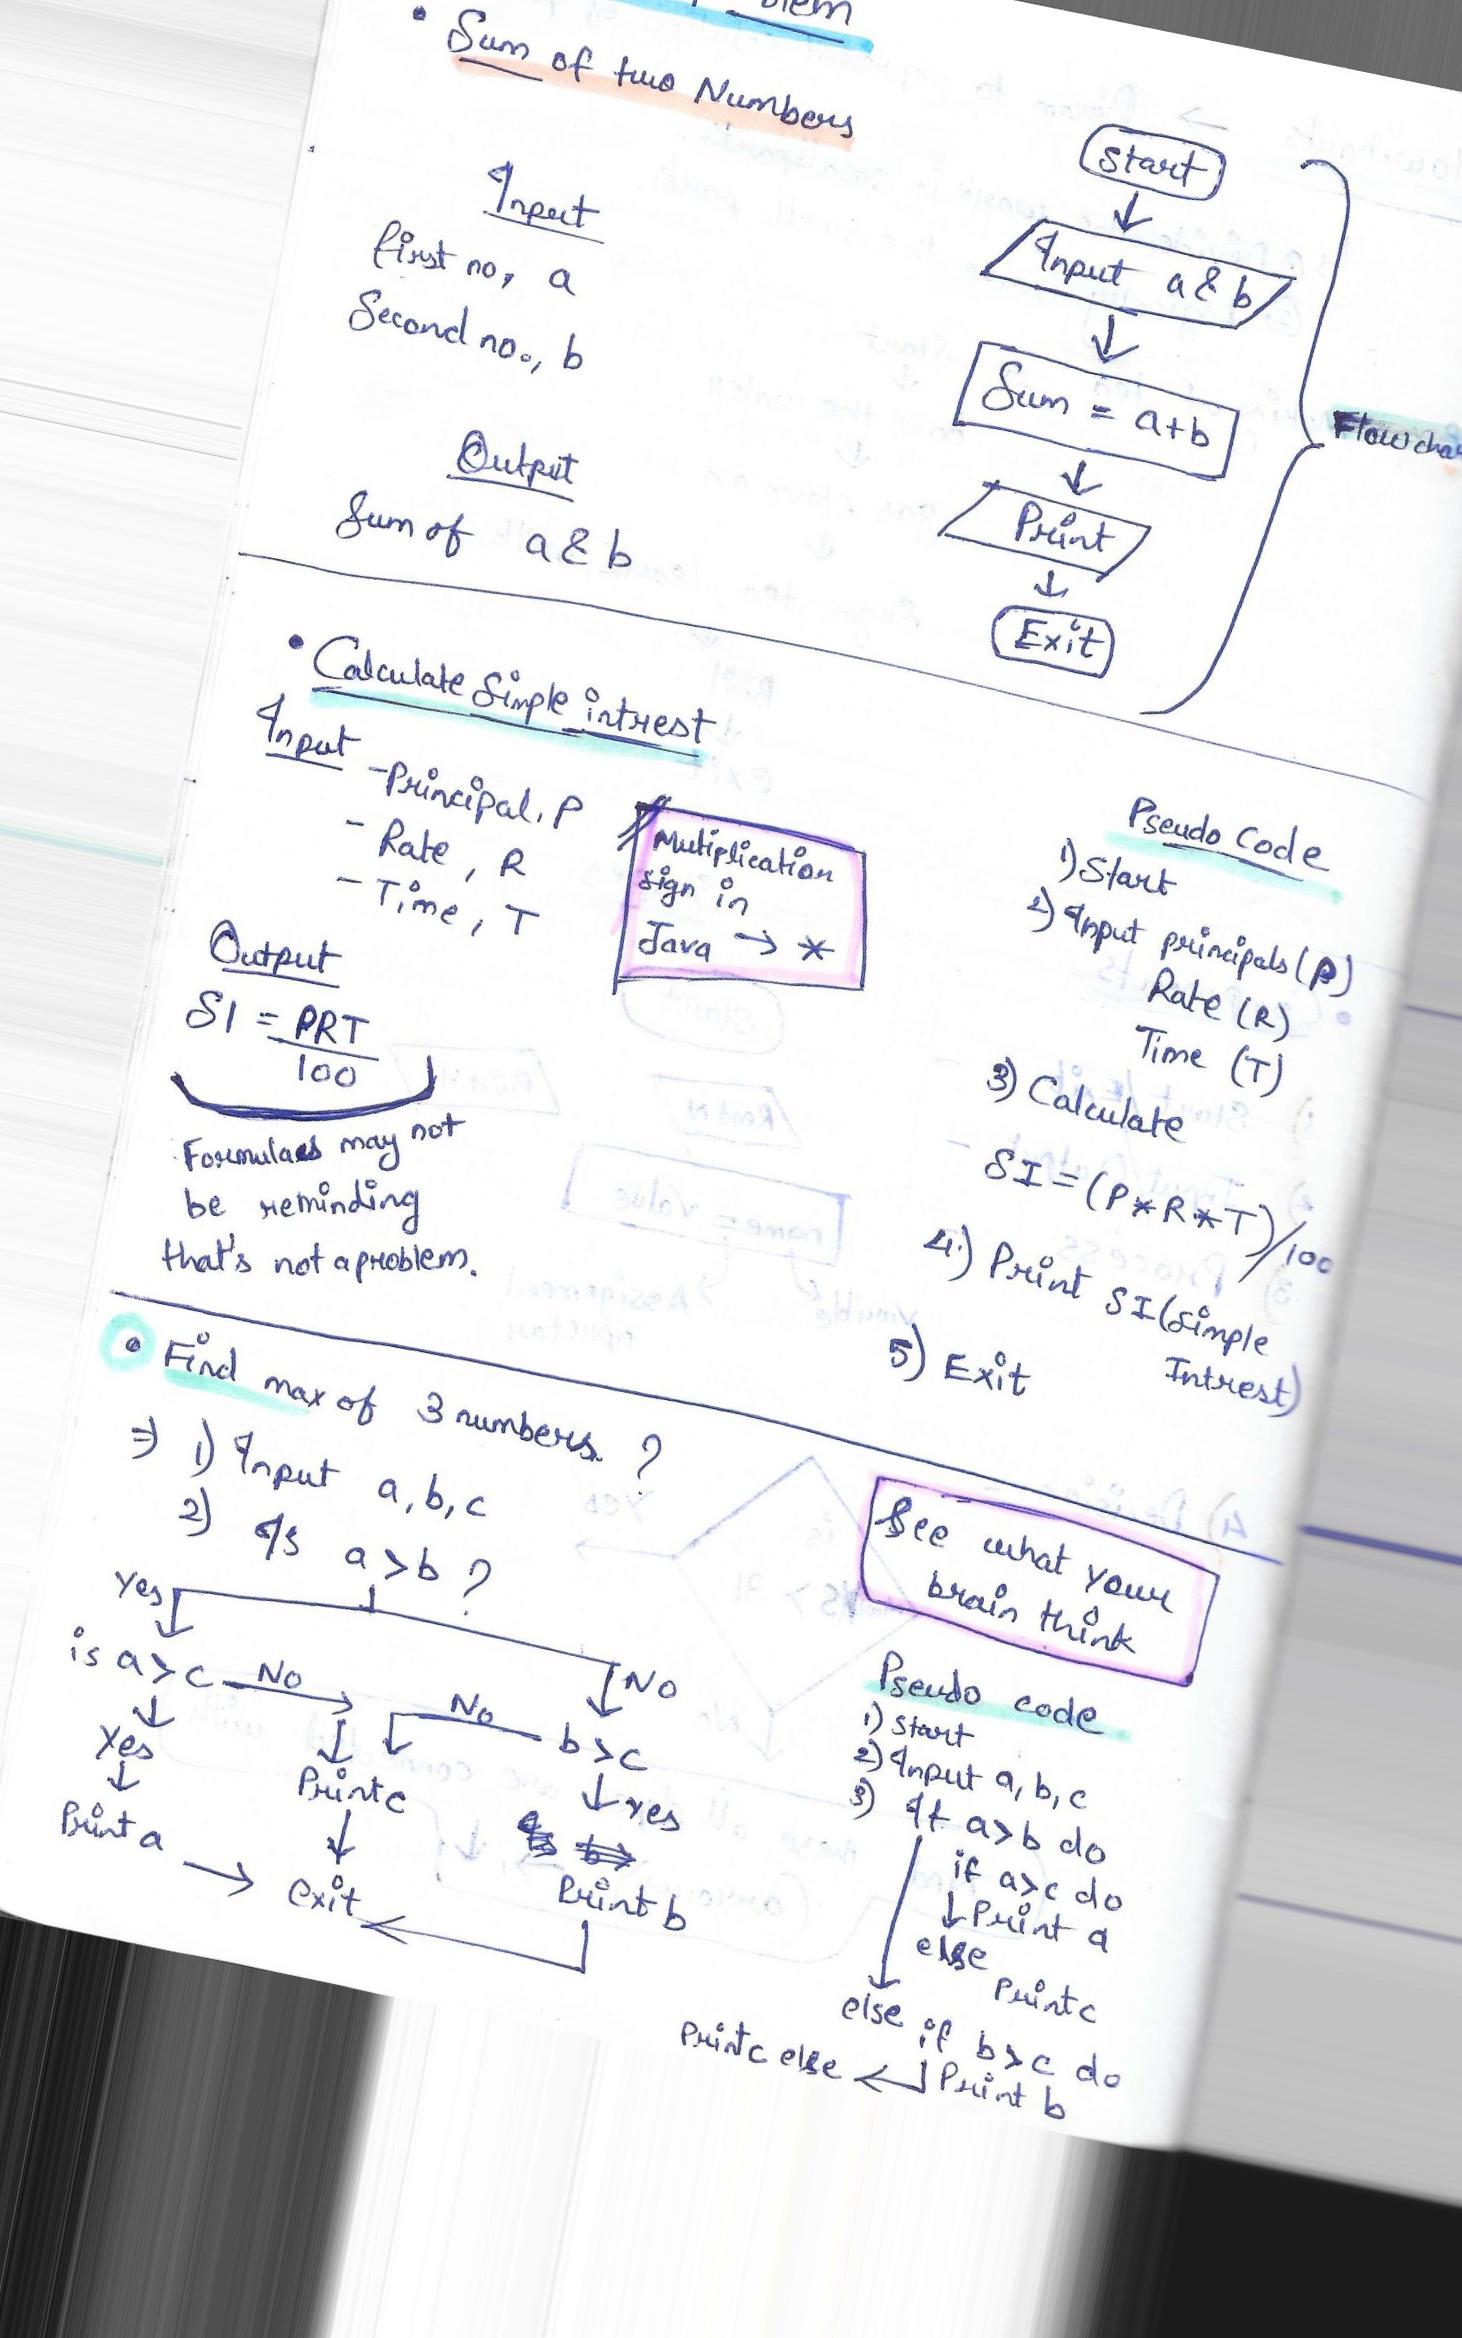 • Sum of two Numbers
Input
first no, a
Second no., b
Output
Sum of a & b
Start
Input a & b
Sum = a+b
Print
Exit
• Calculate Simple intrest
Input - Principal, P
- Rate, R
- Time, T
Output
SI = PRT
100
Formulaes may not
be reminding
that's not a problem.
Mutiplication
sign in
Java → *
Pseudo Code
1) Start
2) Input principals (P)
Rate (R)
Time (T)
3) Calculate
SI = (P*R*T)/100
4.) Print SI (Simple
Intrest)
5) Exit
• Find max of 3 numbers. ?
⇒ 1) Input a, b, c
2) Is a > b ?
Yes
No
is a > c No
No b > c
Yes
Yes
Print c
Print a
Print b
exit
See what your
brain think
Pseudo code
1) Start
2) Input a, b, c
3) If a > b do
if a > c do
↓ Print a
else
Print c
else if b > c do
Print b
Print c else